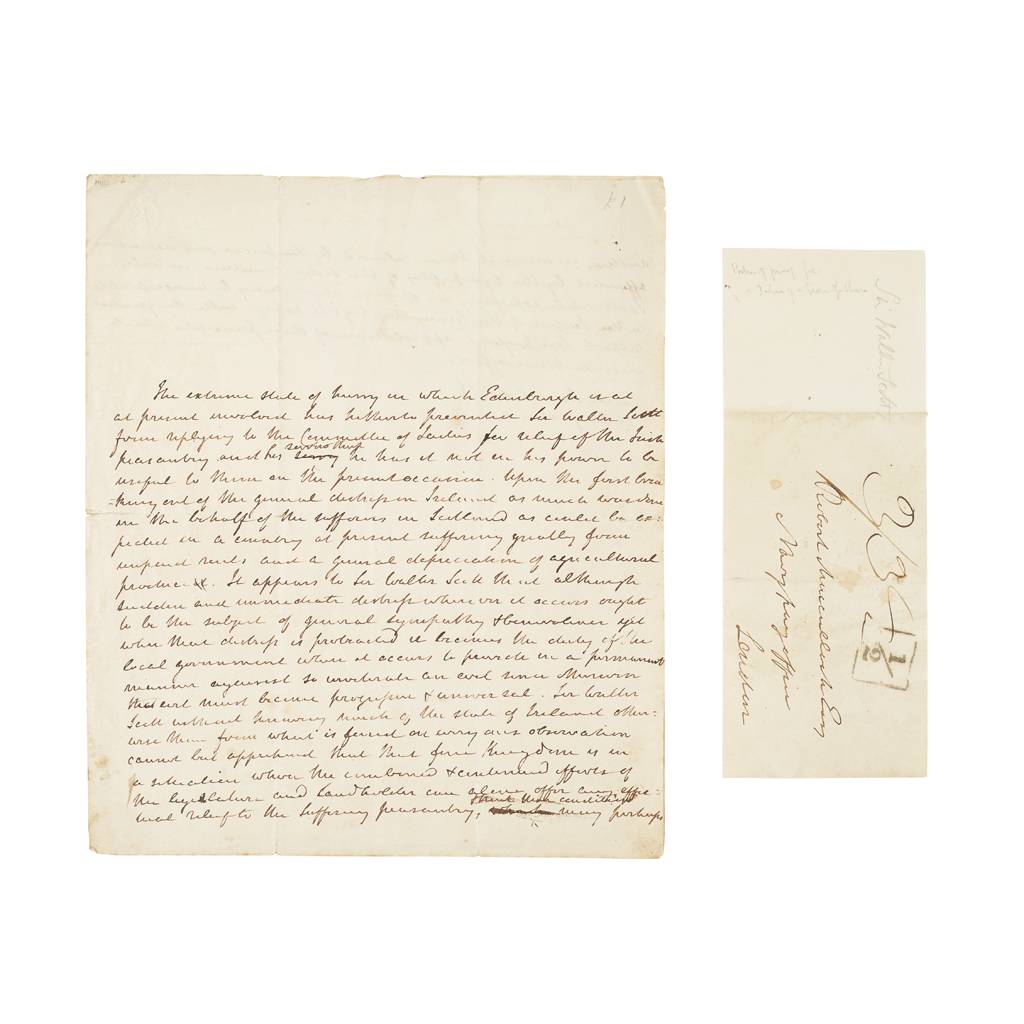 The extreme state of hurry in which Edinburgh is at
at present involved has hitherto prevented Sir Walter Scott
from replying to the Committee of Ladies for relief of the Irish
peasantry and his serious that he has it not in his power to be
useful to them on the present occasion. Upon the first brea
=king out of the general distress in Ireland as much was done
in the behalf of the sufferers in Scotland as could be ex=
pected in a country at present suffering greatly from
unpaid rents and a general depreciation of agricultural
produce. It appears to Sir Walter Scott that although
sudden and immediate distress wherever it occurs ought
to be the subject of general sympathy & benevolence yet
when that distress is protracted it becomes the duty of the
local government where it occurs to provide in a permanent
manner against so inveterate an evil since otherwise
that evil must become progressive & universal. Sir Walter
Scott without knowing much of the state of Ireland other=
wise than from what is forced on every ones observation
cannot but apprehend that that fine Kingdom is in
a situation where the combined & continued efforts of
the legislature and Landholder can alone offer any effec=
tual relief to the suffering peasantry, may perhaps
Sir Walter Scott
Robert Esq
London
1/2